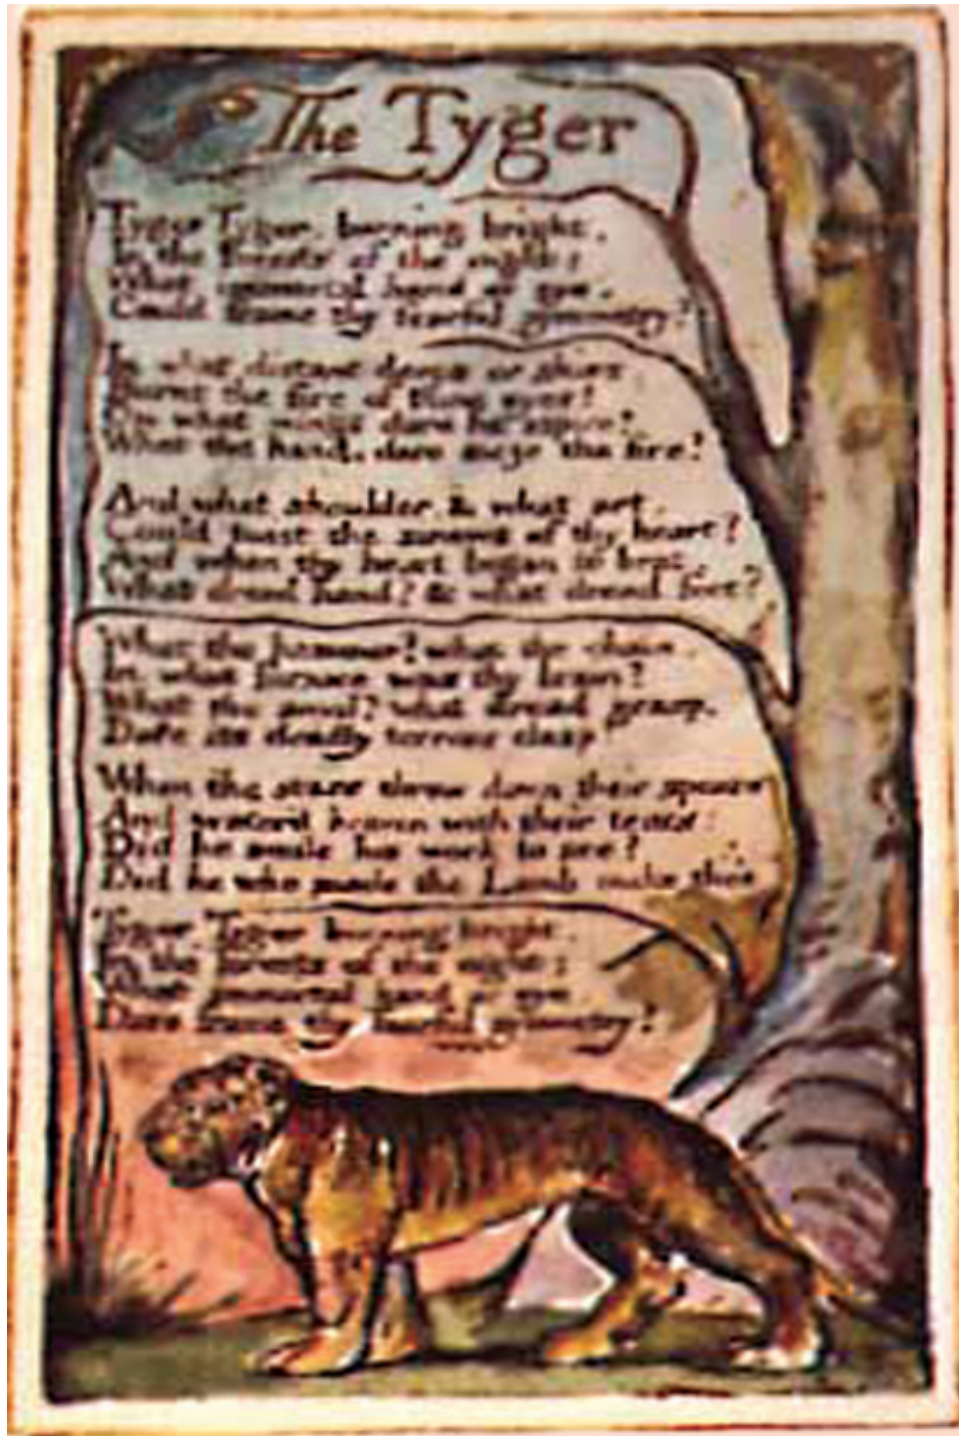 The Tyger
Tyger Tyger, burning bright,
In the forests of the night:
What immortal hand or eye,
Could frame thy fearful symmetry?
In what distant deeps or skies
Burnt the fire of thine eyes?
On what wings dare he aspire?
What the hand, dare sieze the fire?
And what shoulder, & what art,
Could twist the sinews of thy heart?
And when thy heart began to beat,
What dread hand? & what dread feet?
What the hammer? what the chain,
In what furnace was thy brain?
What the anvil? what dread grasp,
Dare its deadly terrors clasp
When the stars threw down their spears
And water'd heaven with their tears:
Did he smile his work to see?
Did he who made the Lamb make thee
Tyger Tyger burning bright,
In the forests of the night:
What immortal hand or eye,
Dare frame thy fearful symmetry?